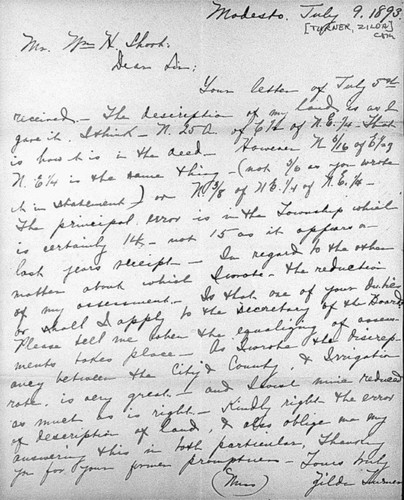 Modesto. July 9. 1893.
[TURNER, ZILDA]
Mr. Wm H. Shook:
Dear Sir:
Your letter of July 5th
received. - The description of my land is as I
gave it, I think - N. 25 A. of E ½ of N.E. ¼ - That
is how it is in the deed. However N 5/16 of E ½ of
N. E ¼ is the same thing - (not 5/6 as you wrote
it in statement)
The principal error is in the Township which
is certainly 14 - not 15 as it appears on
last years receipt - In regard to the other
matter about which I wrote - the reduction
of my assessment - Is that one of your duties
or shall I apply to the Secretary of the Board
Please tell me when the equalizing of assess-
ments takes place - As I wrote the discrep-
ancy between the City & County, & Irrigation
rate, is very great - and I want mine reduced
as much as is right - Kindly right the error
of description of land, & also oblige me by
answering this in both particulars, Thanking
you for your former promptness Yours truly
(Miss) Zilda Turner